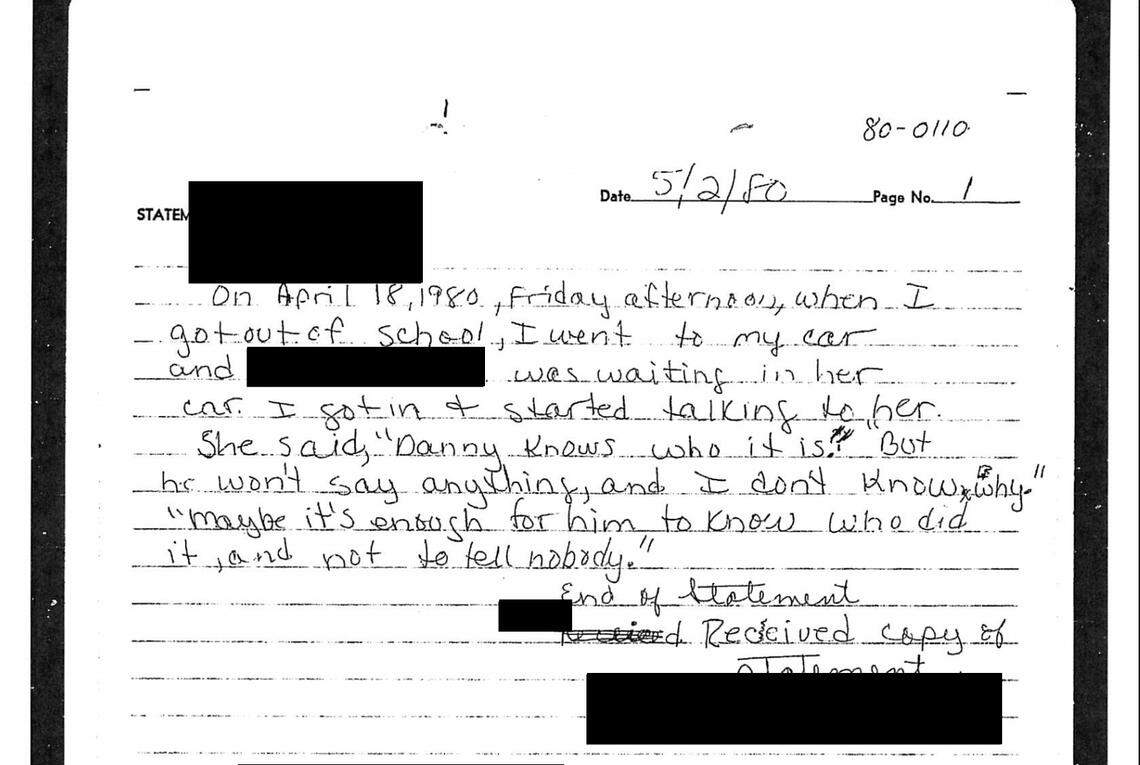 80-0110
Date 5/2/80 Page No. 1
STATEM
On April 18, 1980, Friday afternoon, when I
got out of school, I went to my car
and was waiting in her
car. I got in & started talking to her.
She said, "Danny knows who it is." "But
he won't say anything, and I don't know why."
"maybe it's enough for him to know who did
it, and not to tell nobody."
End of Statement
Received copy of
statement